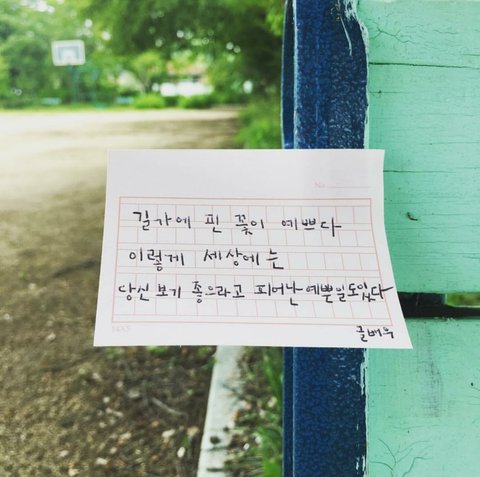 No
길가에 핀 꽃이 예쁘다
이렇게 세상에는
당신 보기 좋으라고 피어난 예쁨일도있다
글배우